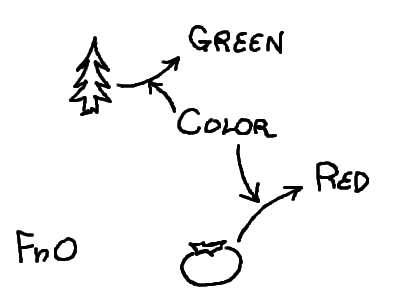 GREEN
COLOR
RED
FnO